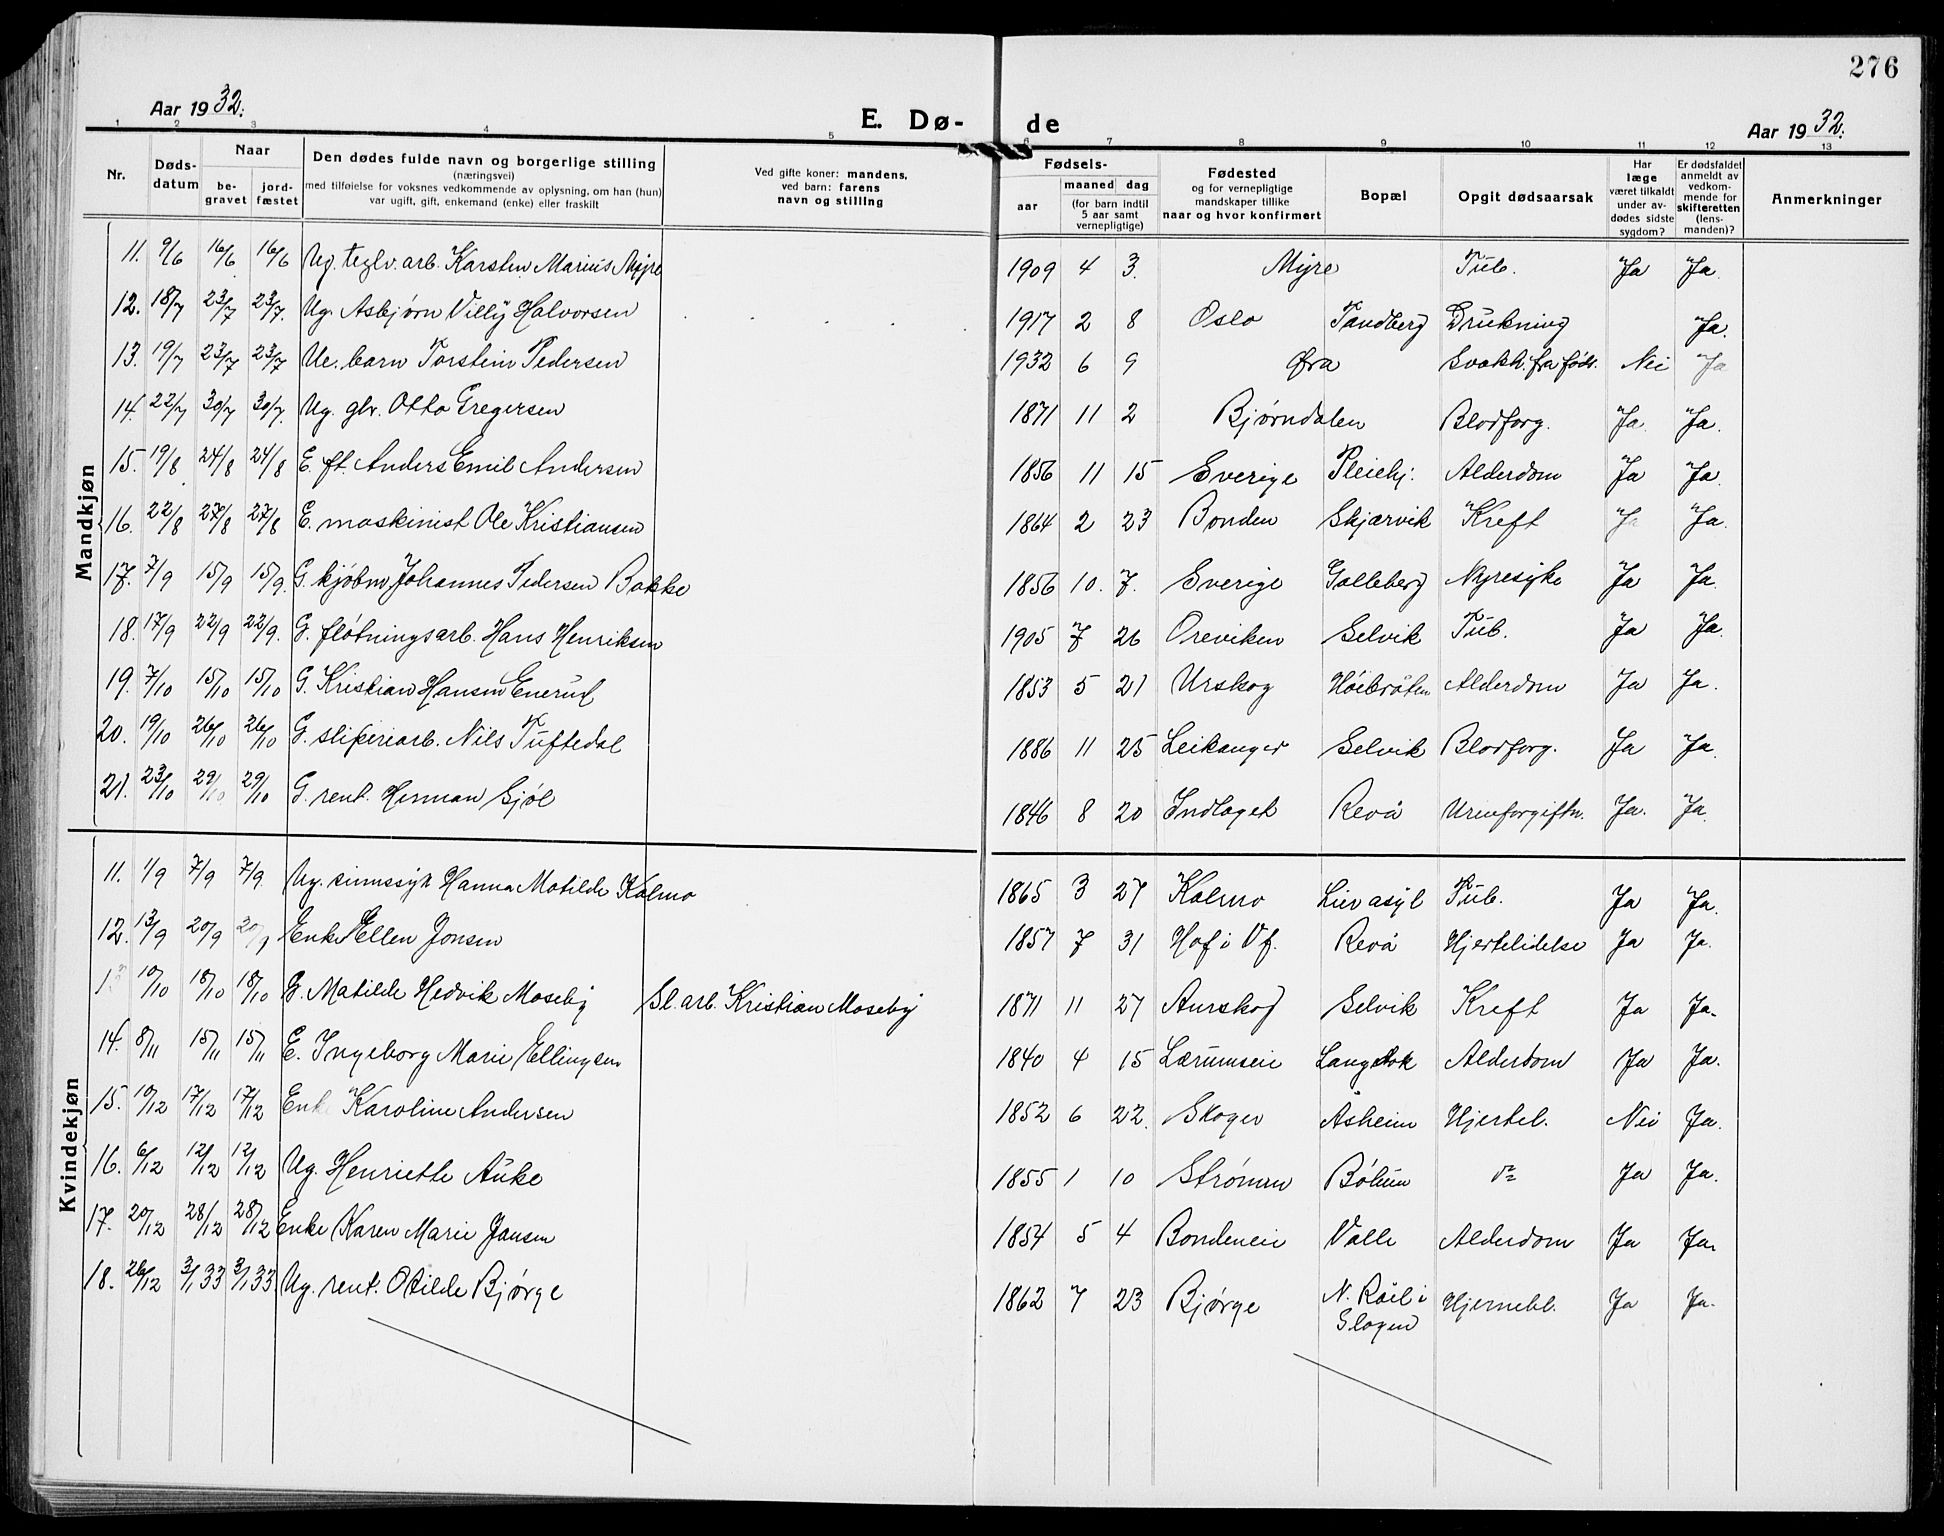 276
Aar 1932.
E. Dø- de
Aar 1932.
1 2 3 4 5 6 7 8 9 10 11 12 13
Nr.
Døds-datum
Naar
be-gravet
jord-fæstet
Den dødes fulde navn og borgerlige stilling
(næringsvei)
med tilføielse for voksnes vedkommende av oplysning, om han (hun)
var ugift, gift, enkemand (enke) eller fraskilt
Ved gifte koner: mandens,
ved barn: farens
navn og stilling
Fødsels-
aar
maaned dag
(for barn indtil
5 aar samt
vernepligtige)
Fødested
og for vernepligtige
mandskaper tillike
naar og hvor konfirmert
Bopæl
Opgit dødsaarsak
Har
læge
været tilkaldt
under av-
dødes sidste
sygdom?
Er dødsfaldet
anmeldt av
vedkom-
mende for
skifteretten
(lens-
manden)?
Anmerkninger
Mandkjøn
11. 9/6 16/6 16/6 Ug. teglv. arb. Karsten Marius Myre 1909 4 3. Myre Tub. Ja Ja.
12. 18/7 23/7 23/7. Ug. Asbjørn Villy Halvorsen 1917 2 8 Oslo Tandberg Drukning Ja.
13. 19/7 23/7 23/7. Ue. barn Torstein Pedersen 1932 6 9 Øra Svakh. fra føds. Nei Ja
14. 22/7 30/7 30/7. Ug. glv. Otto Gregersen 1871 11 2 Bjørndalen Blodforg. Ja. Ja.
15. 19/8 24/8 24/8 E. ft. Anders Emil Andersen 1856 11 15 Sverige Pleiehj. Alderdom Ja Ja.
16. 22/8 27/8 27/8 E. maskinist Ole Kristiansen 1864 2 23 Bonden Skjærvik Kreft Ja Ja.
17. 7/9 15/9 15/9. G. kjøbm. Johannes Pedersen Bakke 1856 10. 7. Sverige Galleberg Nyresyke Ja Ja.
18. 17/9 22/9 22/9. G. fløtningsarb. Hans Henriksen 1905 7 26 Oreviken Selvik Tub. Ja Ja.
19. 7/10 15/10 15/10 G. Kristian Hansen Enerud 1853 5 21 Urskog Høiebråten Alderdom Ja Ja.
20. 19/10 26/10 26/10 G. sliperiarb. Nils Tuftedal 1886 11 25 Leikanger Selvik Blodforg. Ja Ja.
21. 23/10 29/10 29/10 G. rent. Herman Sjøl 1846 8 20 Indlaget Revå Urinforgiftn. Ja. Ja.
Kvindekjøn
11. 1/9 7/9 7/9. Ug. sinnssyk Hanna Matilde Kalmo 1865 3 27 Kalmo Lier asyl Tub. Ja Ja.
12. 13/9 20/9 20/9 Enke Ellen Jonsen 1857 7 31 Hof i Vf. Revå Hjertelidelse Ja Ja.
13 10/10 18/10 18/10 G. Matilde Hedvik Moseby Sl. arb. Kristian Moseby 1871 11 27 Aurskog Selvik Kreft Ja Ja.
14. 8/11 15/11 15/11 E. Ingeborg Marie Ellingsen 1840 4 15 Lærumseie Alderdom Ja Ja.
15. 10/12 17/12 17/12 Enke Karoline Andersen 1852 6 22. Skoger Åsheim Hjertel. Nei Ja.
16. 6/12 12/12 12/12 Ug. Henriette Auke 1855 1 10 Strømm Bølum do Ja Ja.
17. 20/12 28/12 28/12 Enke Karen Marie Jansen 1854 5 4 Bondeneie Valle Alderdom Ja Ja.
18. 26/12 3/1 33 3/1 33. Ug. rent. Otilde Bjørge 1862 7 23 Bjørge N. Råel i Slagen Hjernebl. Ja Ja.